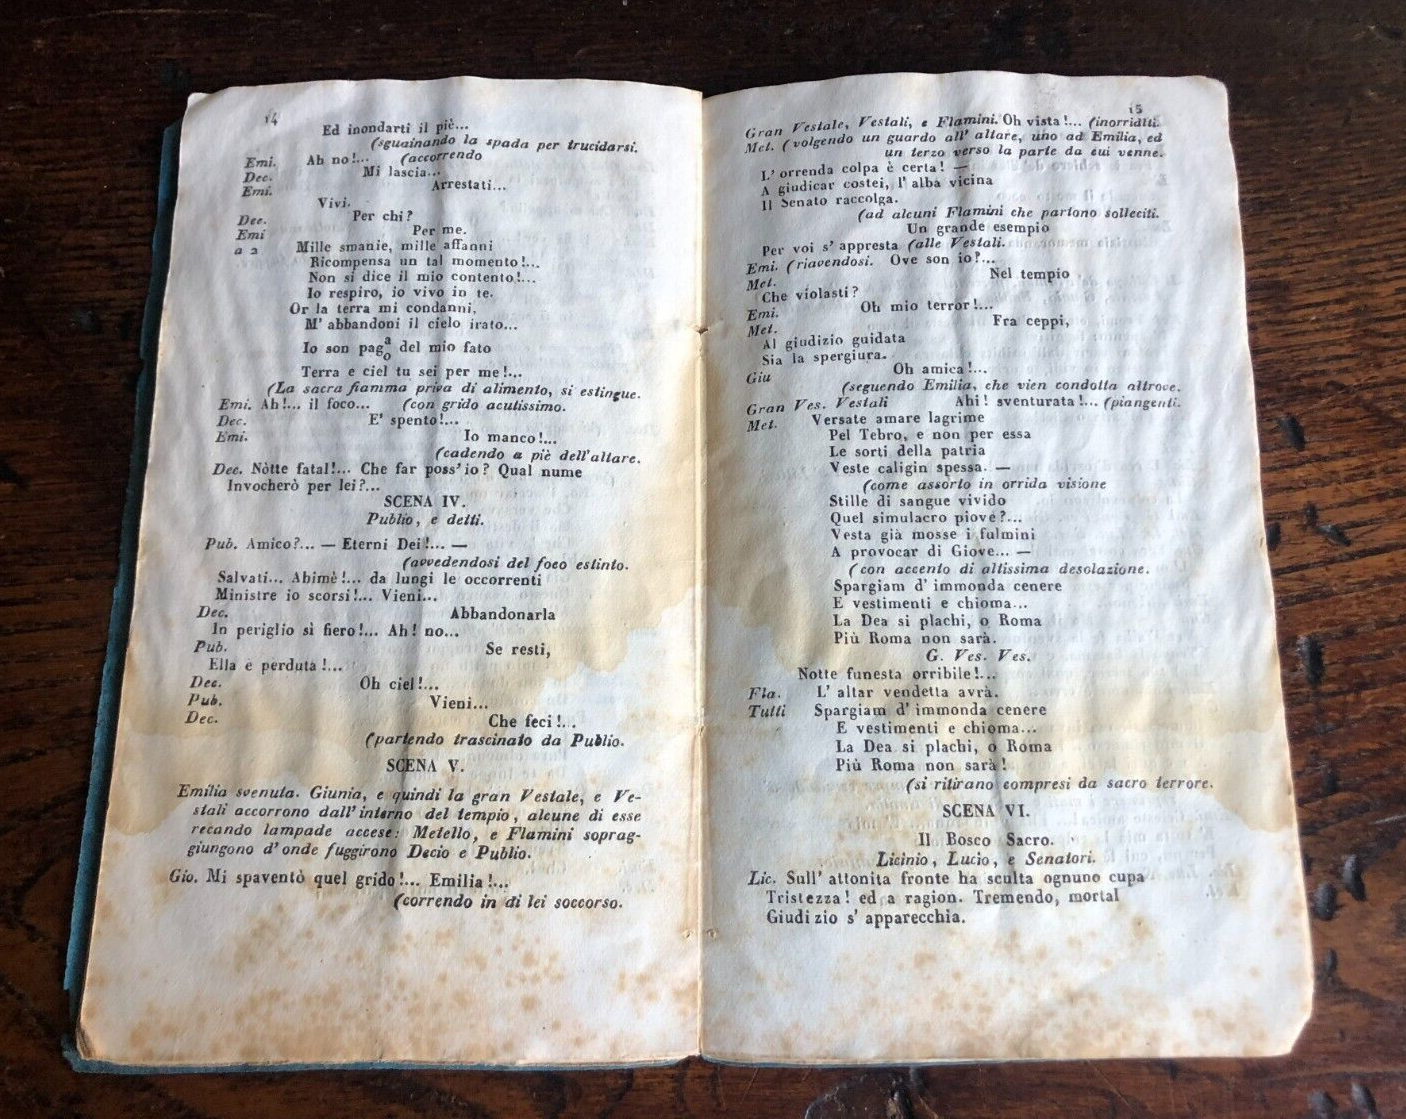 14
Ed inondarti il piè...
(sguainando la spada per trucidarsi.
Emi. Ah no!... (accorrendo
Dec. Mi lascia...
Emi. Arrestati...
Vivi.
Dec. Per chi?
Emi Per me.
a 2 Mille smanie, mille affanni
Ricompensa un tal momento!...
Non si dice il mio contento!...
Io respiro, io vivo in te.
Or la terra mi condanni,
M' abbandoni il cielo irato...
Io son pag a o del mio fato
Terra e ciel tu sei per me!...
(La sacra fiamma priva di alimento, si estingue.
Emi. Ah!... il foco... (con grido acutissimo.
Dec. E' spento!...
Emi. Io manco!...
(cadendo a piè dell'altare.
Dec. Nòtte fatal!... Che far poss'io? Qual nume
Invocherò per lei?...
SCENA IV.
Publio, e detti.
Pub. Amico?... — Eterni Dei!... —
(avvedendosi del foco estinto.
Salvati... Ahimè!... da lungi le occorrenti
Ministre io scorsi!... Vieni...
Dec. Abbandonarla
In periglio sì fiero!... Ah! no...
Pub. Se resti,
Ella è perduta!...
Dec. Oh ciel!...
Pub. Vieni...
Dec. Che feci!...
(partendo trascinato da Publio.
SCENA V.
Emilia svenuta. Giunia, e quindi la gran Vestale, e Ve-
stali accorrono dall'interno del tempio, alcune di esse
recando lampade accese: Metello, e Flamini soprag-
giungono d'onde fuggirono Decio e Publio.
Gio. Mi spaventò quel grido!... Emilia!...
(correndo in di lei soccorso.
15
Gran Vestale, Vestali, e Flamini. Oh vista!... (inorriditi.
Met. (volgendo un guardo all' altare, uno ad Emilia, ed
un terzo verso la parte da cui venne.
L' orrenda colpa è certa! —
A giudicar costei, l' alba vicina
Il Senato raccolga.
(ad alcuni Flamini che partono solleciti.
Un grande esempio
Per voi s' appresta (alle Vestali.
Emi. (riavendosi. Ove son io?...
Met. Nel tempio
Che violasti?
Emi. Oh mio terror!...
Met. Fra ceppi,
Al giudizio guidata
Sia la spergiura.
Giu Oh amica!...
(seguendo Emilia, che vien condotta altrove.
Gran Ves. Vestali Ahi! sventurata!... (piangenti.
Met. Versate amare lagrime
Pel Tebro, e non per essa
Le sorti della patria
Veste caligin spessa. —
(come assorto in orrida visione
Stille di sangue vivido
Quel simulacro piove?...
Vesta già mosse i fulmini
A provocar di Giove... —
(con accento di altissima desolazione.
Spargiam d' immonda cenere
E vestimenti e chioma...
La Dea si plachi, o Roma
Più Roma non sarà.
G. Ves. Ves.
Notte funesta orribile!...
Fla. L' altar vendetta avrà.
Tutti Spargiam d' immonda cenere
E vestimenti e chioma...
La Dea si plachi, o Roma
Più Roma non sarà!
(si ritirano compresi da sacro terrore.
SCENA VI.
Il Bosco Sacro.
Licinio, Lucio, e Senatori.
Lic. Sull' attonita fronte ha sculta ognuno cupa
Tristezza! ed a ragion. Tremendo, mortal
Giudizio s' apparecchia.